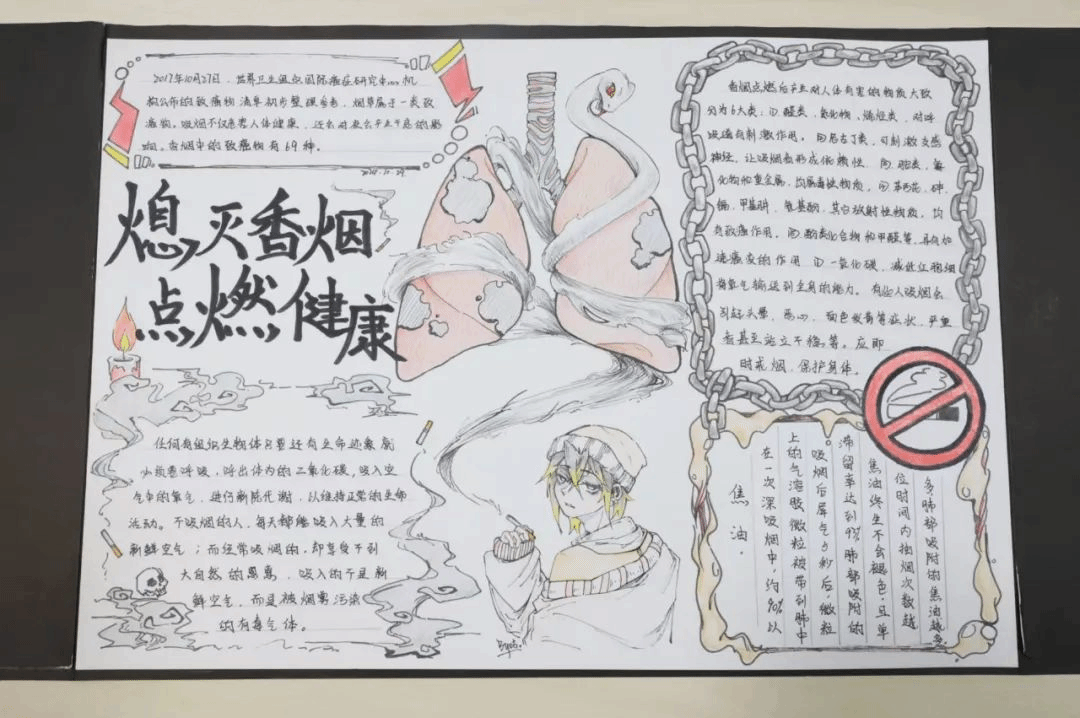 2017年10月27日，世界卫生组织国际癌症研究中心机
构公布的致癌物清单初步整理参考，烟草属于一类致
癌物。吸烟不仅危害人体健康，还会对社会产生不良的影
响。香烟中的致癌物有69种。
熄灭香烟
点燃健康
任何有组织生物体只要还有生命迹象就
必须要呼吸，呼出体内的二氧化碳，吸入空
气中的氧气，进行新陈代谢，以维持正常的生命
活动。不吸烟的人，每天都能吸入大量的
新鲜空气；而经常吸烟的，却享受不到
大自然的恩惠，吸入的不是新
鲜空气，而是被烟雾污染
的有毒气体。
香烟点燃后产生对人体有害的物质大致
分为6大类：①醛类、氮化物、烯烃类，对呼
吸道有刺激作用。②尼古丁类，可刺激交感
神经，让吸烟者形成依赖性。③胺类、氰
化物和重金属，均属毒性物质。④苯丙芘、砷、
镉、甲基肼、氨基酚、其它放射性物质，均
有致癌作用。⑤酚类化合物和甲醛等，具有加
速癌变的作用⑥一氧化碳，减低红血球
将氧气输送到全身的能力。有些人吸烟会
引起头晕、恶心、面色苍白等症状，严重
者甚至站立不稳等。应即
时戒烟，保护身体。
焦油.
在一次深吸烟中，约90%以
上的气溶胶微粒被带到肺中
吸烟后屏气5秒后，微粒
滞留率达到97%肺部吸附的
焦油终生不会褪色，且单
位时间内抽烟次数越
多肺部吸附的焦油越多